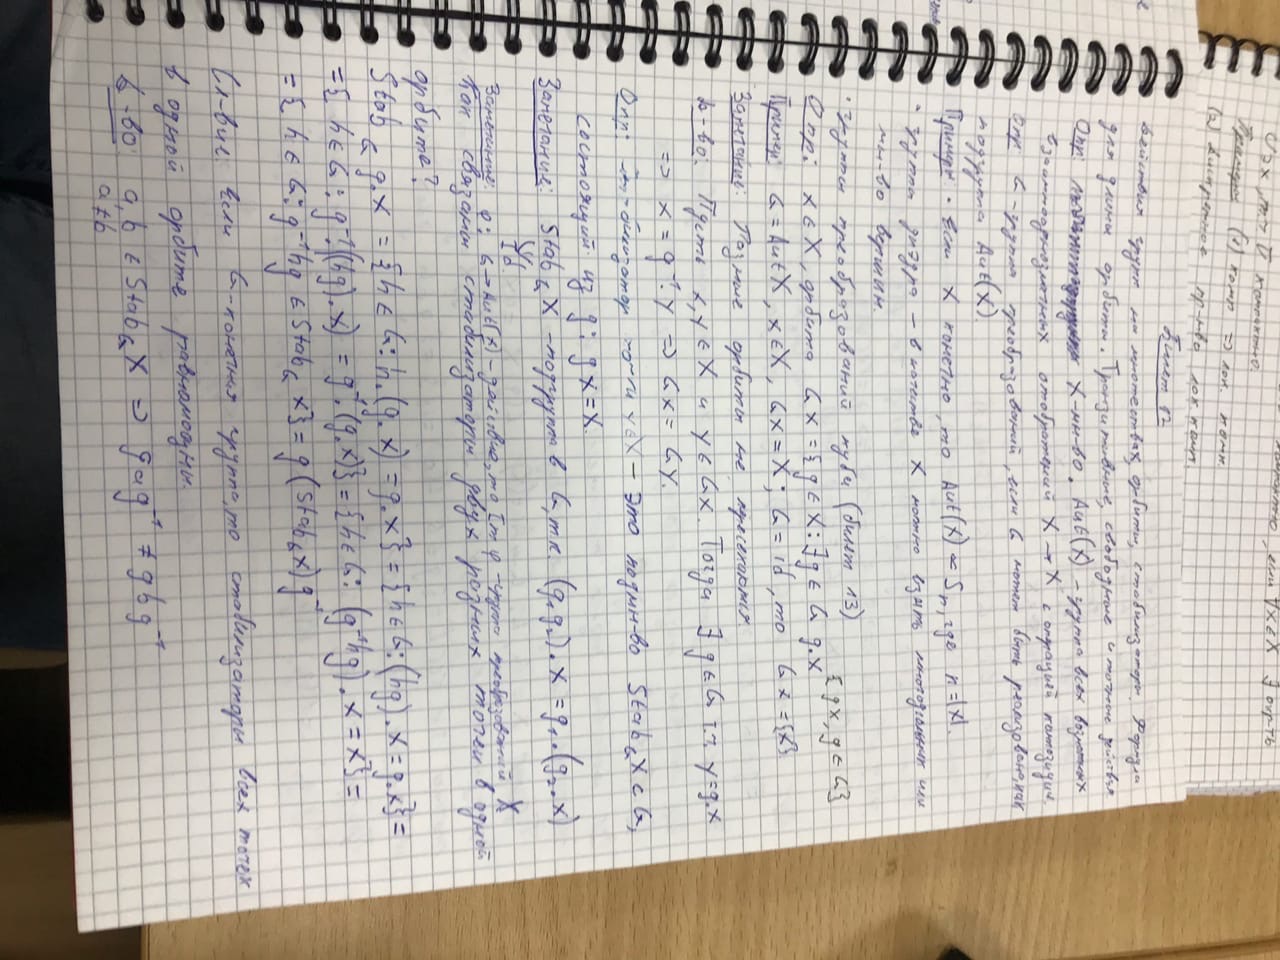 компактно, если ∀x∈X ∃ окр-ть
U∋x, т.ч. U̅ компактно.
Примеры (1) комп ⇒ лок. комп.
(2) дискретное пр-тво лок. комп.
Билет 12
Действия групп на множествах, орбиты, стабилизаторы. Формула
для длины орбиты. Транзитивные, свободные и точные действия.
Опр: X-мн-во. Aut(X) - группа всех возможных
взаимооднозначных отображений X → X с операцией композиции.
Опр: G-группа преобразований, если G может быть реализована, как
подгруппа Aut(X).
Примеры · Если X конечно, то Aut(X) ≃ Sn, где n=|X|.
· группа диэдра – в качестве X можно взять многоугольник или
мн-во вершин.
· группы преобразований куба (билет 13)
{gx, g∈G}
Опр: x∈X, орбита Gx = {g∈X: ∃g∈G g.x
Пример: G=AutX, x∈X, Gx=X; G=id, то Gx={x}
Замечание: Разные орбиты не пересекаются
Д-во: Пусть x,y∈X и y∈Gx. Тогда ∃ g∈G т.ч. y=g.x
⇒ x = g⁻¹.y ⇒ Gx = Gy.
Опр: Ста-билизатор точки x∈X – это подмн-во Stab_G X ⊂ G,
состоящий из g: gx=x.
Замечание: Stab_G X - подгруппа в G, т.к. (g₁g₂).x = g₁.(g₂.x)
Id
Замечание: φ: G→Aut(X) – действие, то Im φ - группа преобразований X
Как связаны стабилизаторы двух разных точек в одной
орбите?
Stab_G g.x = {h∈G: h.(g.x) = g.x} = {h∈G: (hg).x = g.x} =
= {h∈G: g⁻¹.((hg).x) = g⁻¹.(g.x)} = {h∈G: (g⁻¹hg).x = x} =
= {h∈G: g⁻¹hg ∈ Stab_G x} = g(Stab_G x)g⁻¹
Сл-вие: Если G-конечная группа, то стабилизаторы всех точек
в одной орбите равномощны.
Д-во: a,b ∈ Stab_G X ⇒ gag⁻¹ ≠ gbg⁻¹
a≠b